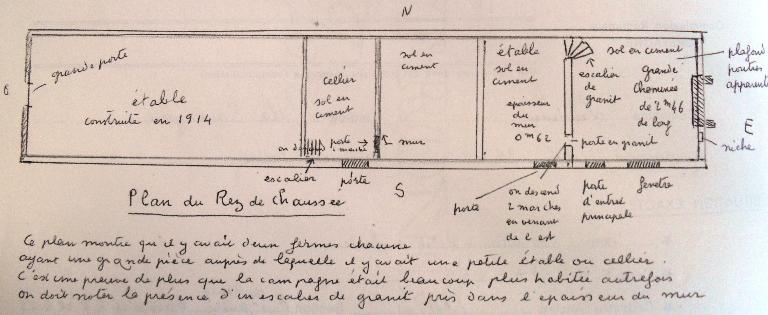 N
O
grande porte
étable
construite en 1914
cellier
sol en
ciment
on descend
porte
1 marche
escalier
porte
mur
sol en
ciment
étable
sol en
ciment
epaisseur
du
mur
0m62
escalier
de
granit
porte en granit
sol en ciment
grande
cheminée
de 2m46
de long
plafond
poutres
apparentes
E
niche
S
porte
on descend
2 marches
en venant
de l'est
porte
d'entrée
principale
fenetre
Plan du Rez de Chaussée
Ce plan montre qu'il y avait deux fermes chacune
ayant une grande pièce auprès de laquelle il y avait une petite étable ou cellier.
C'est une preuve de plus que la campagne était beaucoup plus habitée autrefois
on doit noter la présence d'un escalier de granit pris dans l'epaisseur du mur